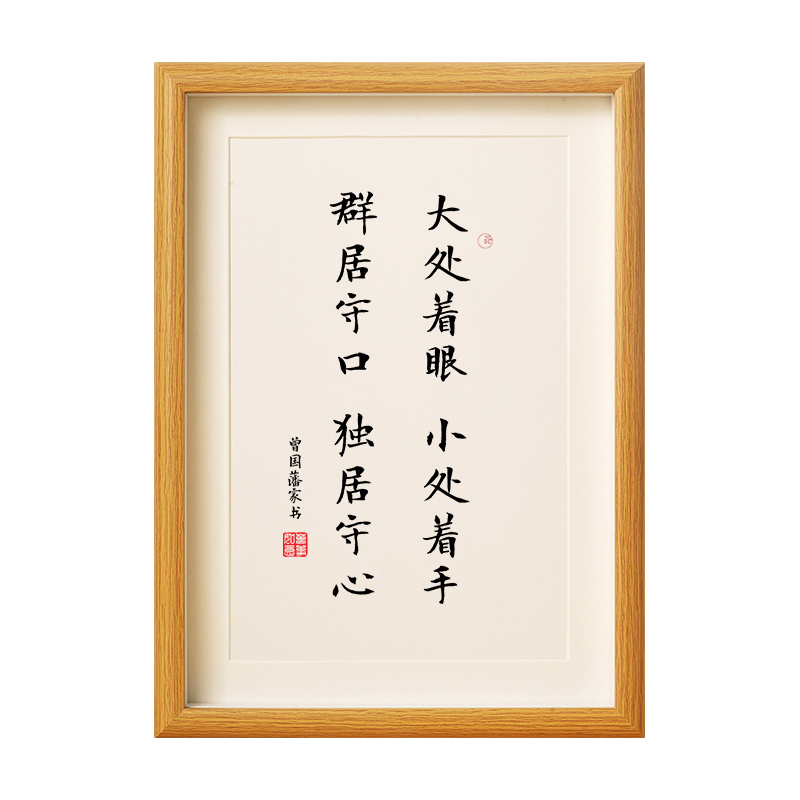 大处着眼 小处着手
群居守口 独居守心
曾国藩家书